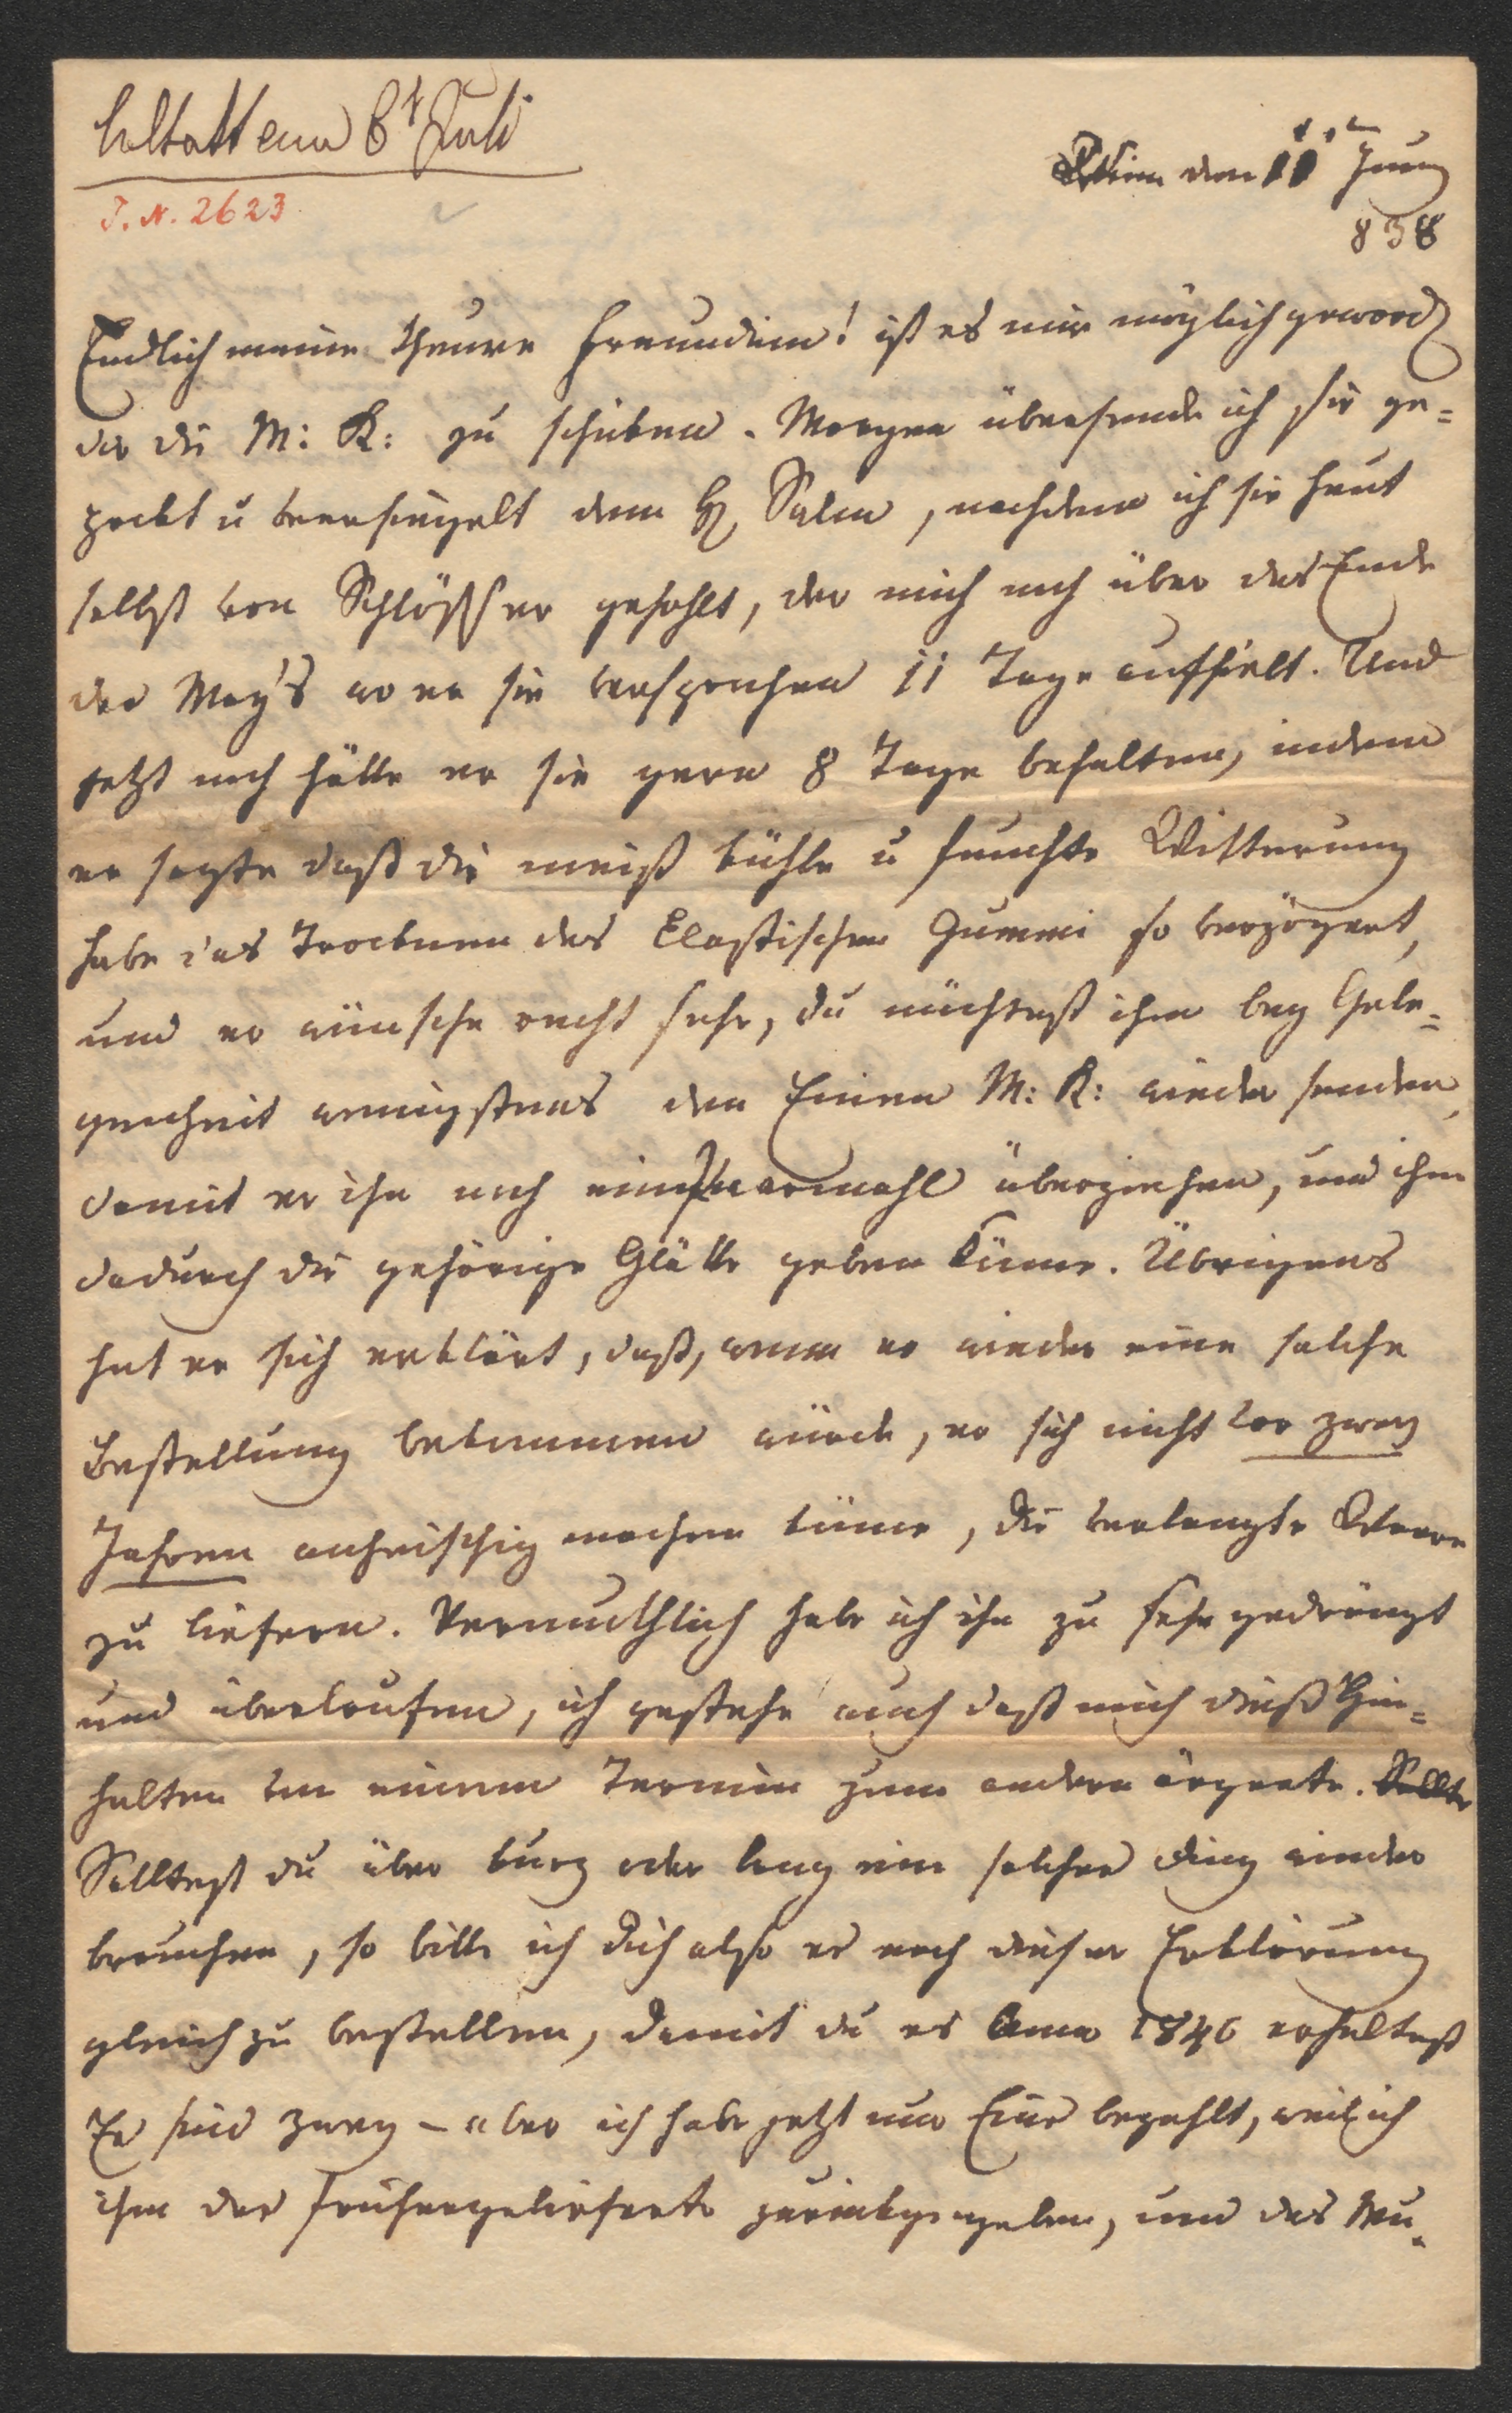 erhalten 6t Juli
Wien den 11t Juny
J. N. 2623
838
Endlich meine theure Freundinn! ist es mir möglich geword
dir die M: K: zu schicken. Morgen übersende ich sie ge=
packt u versiegelt dem H Salm, nachdem ich sie heut
selbst von Schlösser geholt, der mich noch über das Ende
des May's wo er sie versprochen 11 Tage aufhielt. Und
jetzt noch hätte er sie gern 8 Tage behalten, indem
er sagte daß die meist kühle u feuchte Witterung
habe das Trocknen des Elastischen Gummi so verzögert,
und er wünsche recht sehr, du möchtest ihm bey Gele=
genheit wenigstens den Einen M: K: wieder senden,
damit er ihn noch ein Paarmahl überziehen, und ihm
dadurch die gehörige Glätte geben könne. Übrigens
hat er sich erklärt, daß, wenn er wieder eine solche
Bestellung bekommen würde, er sich nicht vor zwey
Jahren anheischig machen könne, die verlangte Waare
zu liefern. Vermuthlich habe ich ihn zu sehr gedrängt
und überlaufen, ich gestehe auch daß mich dieß Hin=
halten von einem Termin zum andern ärgerte. Sollte
Solltest du über kurz oder lang ein solches Ding wieder
brauchen, so bitte ich dich also es nach dieser Erklärung
gleich zu bestellen, damit du es Anno 1840 erhaltest
Es sind zwey – aber ich habe jetzt nur Eins bezahlt, weil ich
ihm das frühergelieferte zurückgegeben, und das Mu=